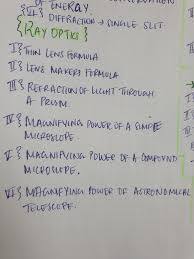 OF ENERGY.
VI} DIFFRACTION → SINGLE SLIT.
{RAY OPTICS}
I} THIN LENS FORMULA
II} LENS MAKERS FORMULA
III} REFRACTION OF LIGHT THROUGH
A PRISM.
IV} MAGNIFYING POWER OF A SIMPLE
MICROSLOPE.
V} MAGNIFYING POWER OF A COMPOUND
MICROSCOPE.
VI} MAGNIFYING POWER OF ASTRONOMICAL
TELESCOPE.